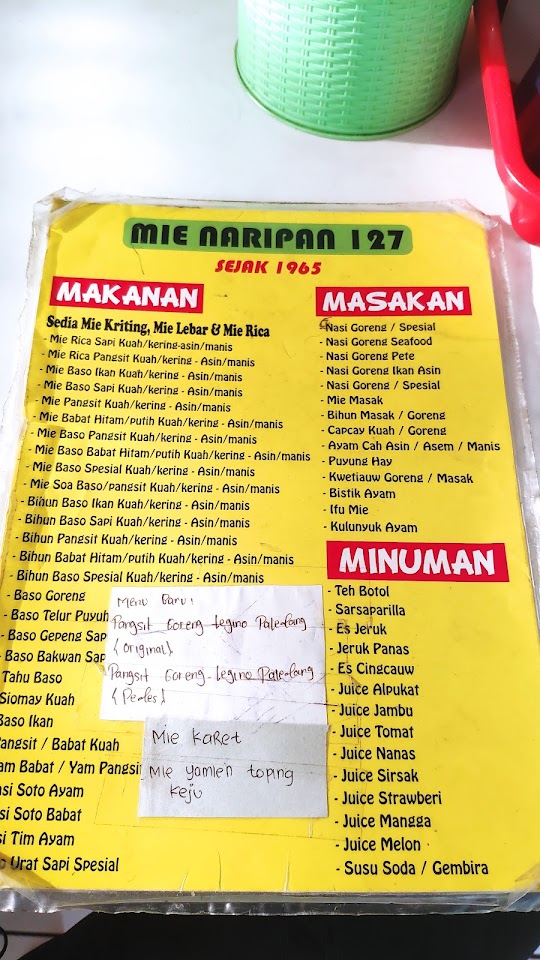 MIE NARIPAN 127
SEJAK 1965
MAKANAN
Sedia Mie Kriting, Mie Lebar & Mie Rica
- Mie Rica Sapi Kuah/kering-asin/manis
- Mie Rica Pangsit Kuah/kering - Asin/manis
- Mie Baso Ikan Kuah/kering - Asin/manis
- Mie Baso Sapi Kuah/kering - Asin/manis
- Mie Pangsit Kuah/kering - Asin/manis
- Mie Babat Hitam/putih Kuah/kering - Asin/manis
- Mie Baso Pangsit Kuah/kering - Asin/manis
- Mie Baso Babat Hitam/putih Kuah/kering - Asin/manis
- Mie Baso Spesial Kuah/kering - Asin/manis
- Mie Soa Baso/pangsit Kuah/kering - Asin/manis
- Bihun Baso Ikan Kuah/kering - Asin/manis
- Bihun Baso Sapi Kuah/kering - Asin/manis
- Bihun Pangsit Kuah/kering - Asin/manis
- Bihun Babat Hitam/putih Kuah/kering - Asin/manis
- Bihun Baso Spesial Kuah/kering - Asin/manis
- Baso Goreng
- Baso Telur Puyuh
- Baso Gepeng Sap
- Baso Bakwan Sap
Tahu Baso
Siomay Kuah
Baso Ikan
Pangsit / Babat Kuah
am Babat / Yam Pangsi
si Soto Ayam
si Soto Babat
si Tim Ayam
o Urat Sapi Spesial
Menu Baru:
Pangsit Goreng Legino Palembang
(original)
Pangsit Goreng - Legino Palembang
(Pedes)
Mie Karet
Mie yamien toping
keju
MASAKAN
- Nasi Goreng / Spesial
- Nasi Goreng Seafood
- Nasi Goreng Pete
- Nasi Goreng Ikan Asin
- Nasi Goreng / Spesial
- Mie Masak
- Bihun Masak / Goreng
- Capcay Kuah / Goreng
- Ayam Cah Asin / Asem / Manis
- Puyung Hay
- Kwetiauw Goreng / Masak
- Bistik Ayam
- Ifu Mie
- Kulunyuk Ayam
MINUMAN
- Teh Botol
- Sarsaparilla
- Es Jeruk
- Jeruk Panas
- Es Cingcauw
- Juice Alpukat
- Juice Jambu
- Juice Tomat
- Juice Nanas
- Juice Sirsak
- Juice Strawberi
- Juice Mangga
- Juice Melon
- Susu Soda / Gembira